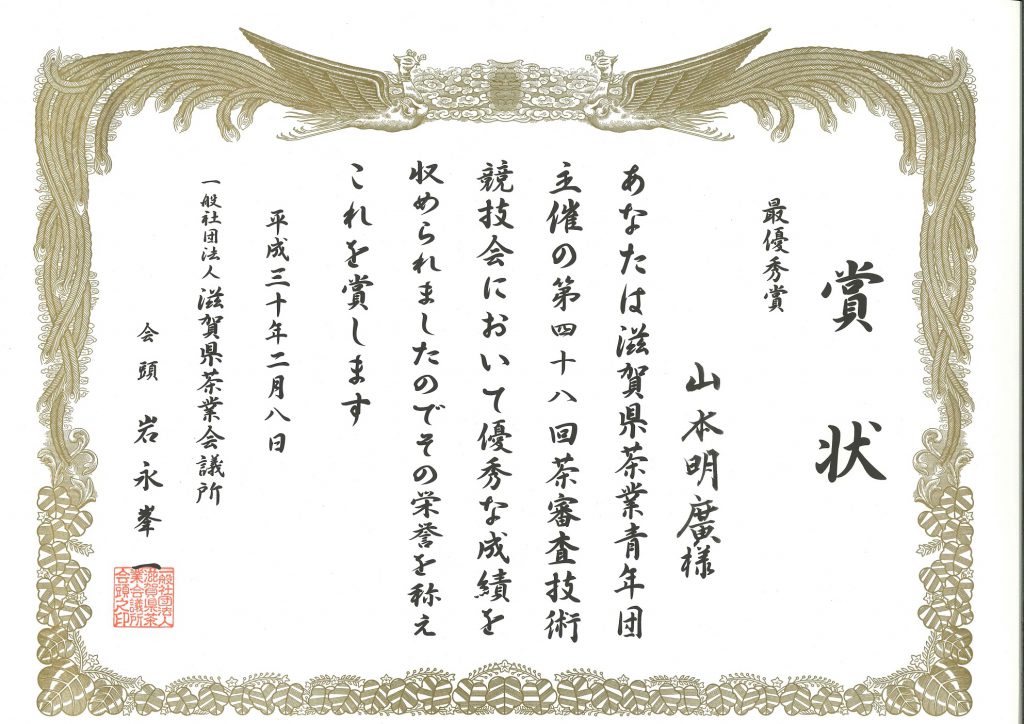 賞状
最優秀賞
山本明廣様
あなたは滋賀県茶業青年団
主催の第四十八回茶審査技術
競技会において優秀な成績を
収められましたのでその栄誉を称え
これを賞します
平成三十年二月八日
一般社団法人 滋賀県茶業会議所
会頭 岩永峯一
一般社団法人
滋賀県茶
業会議所
会頭之印